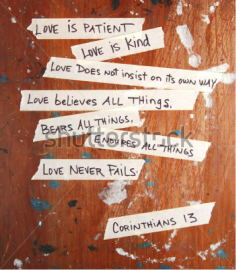 LOVE IS PATIENT
LOVE IS KIND
LOVE DOES NOT INSIST ON ITS OWN WAY
LOVE believes ALL THINGS.
BEARS ALL THINGS.
ENDURES ALL THINGS
LOVE NEVER FAILS
CORINTHIANS 13
shutterstock